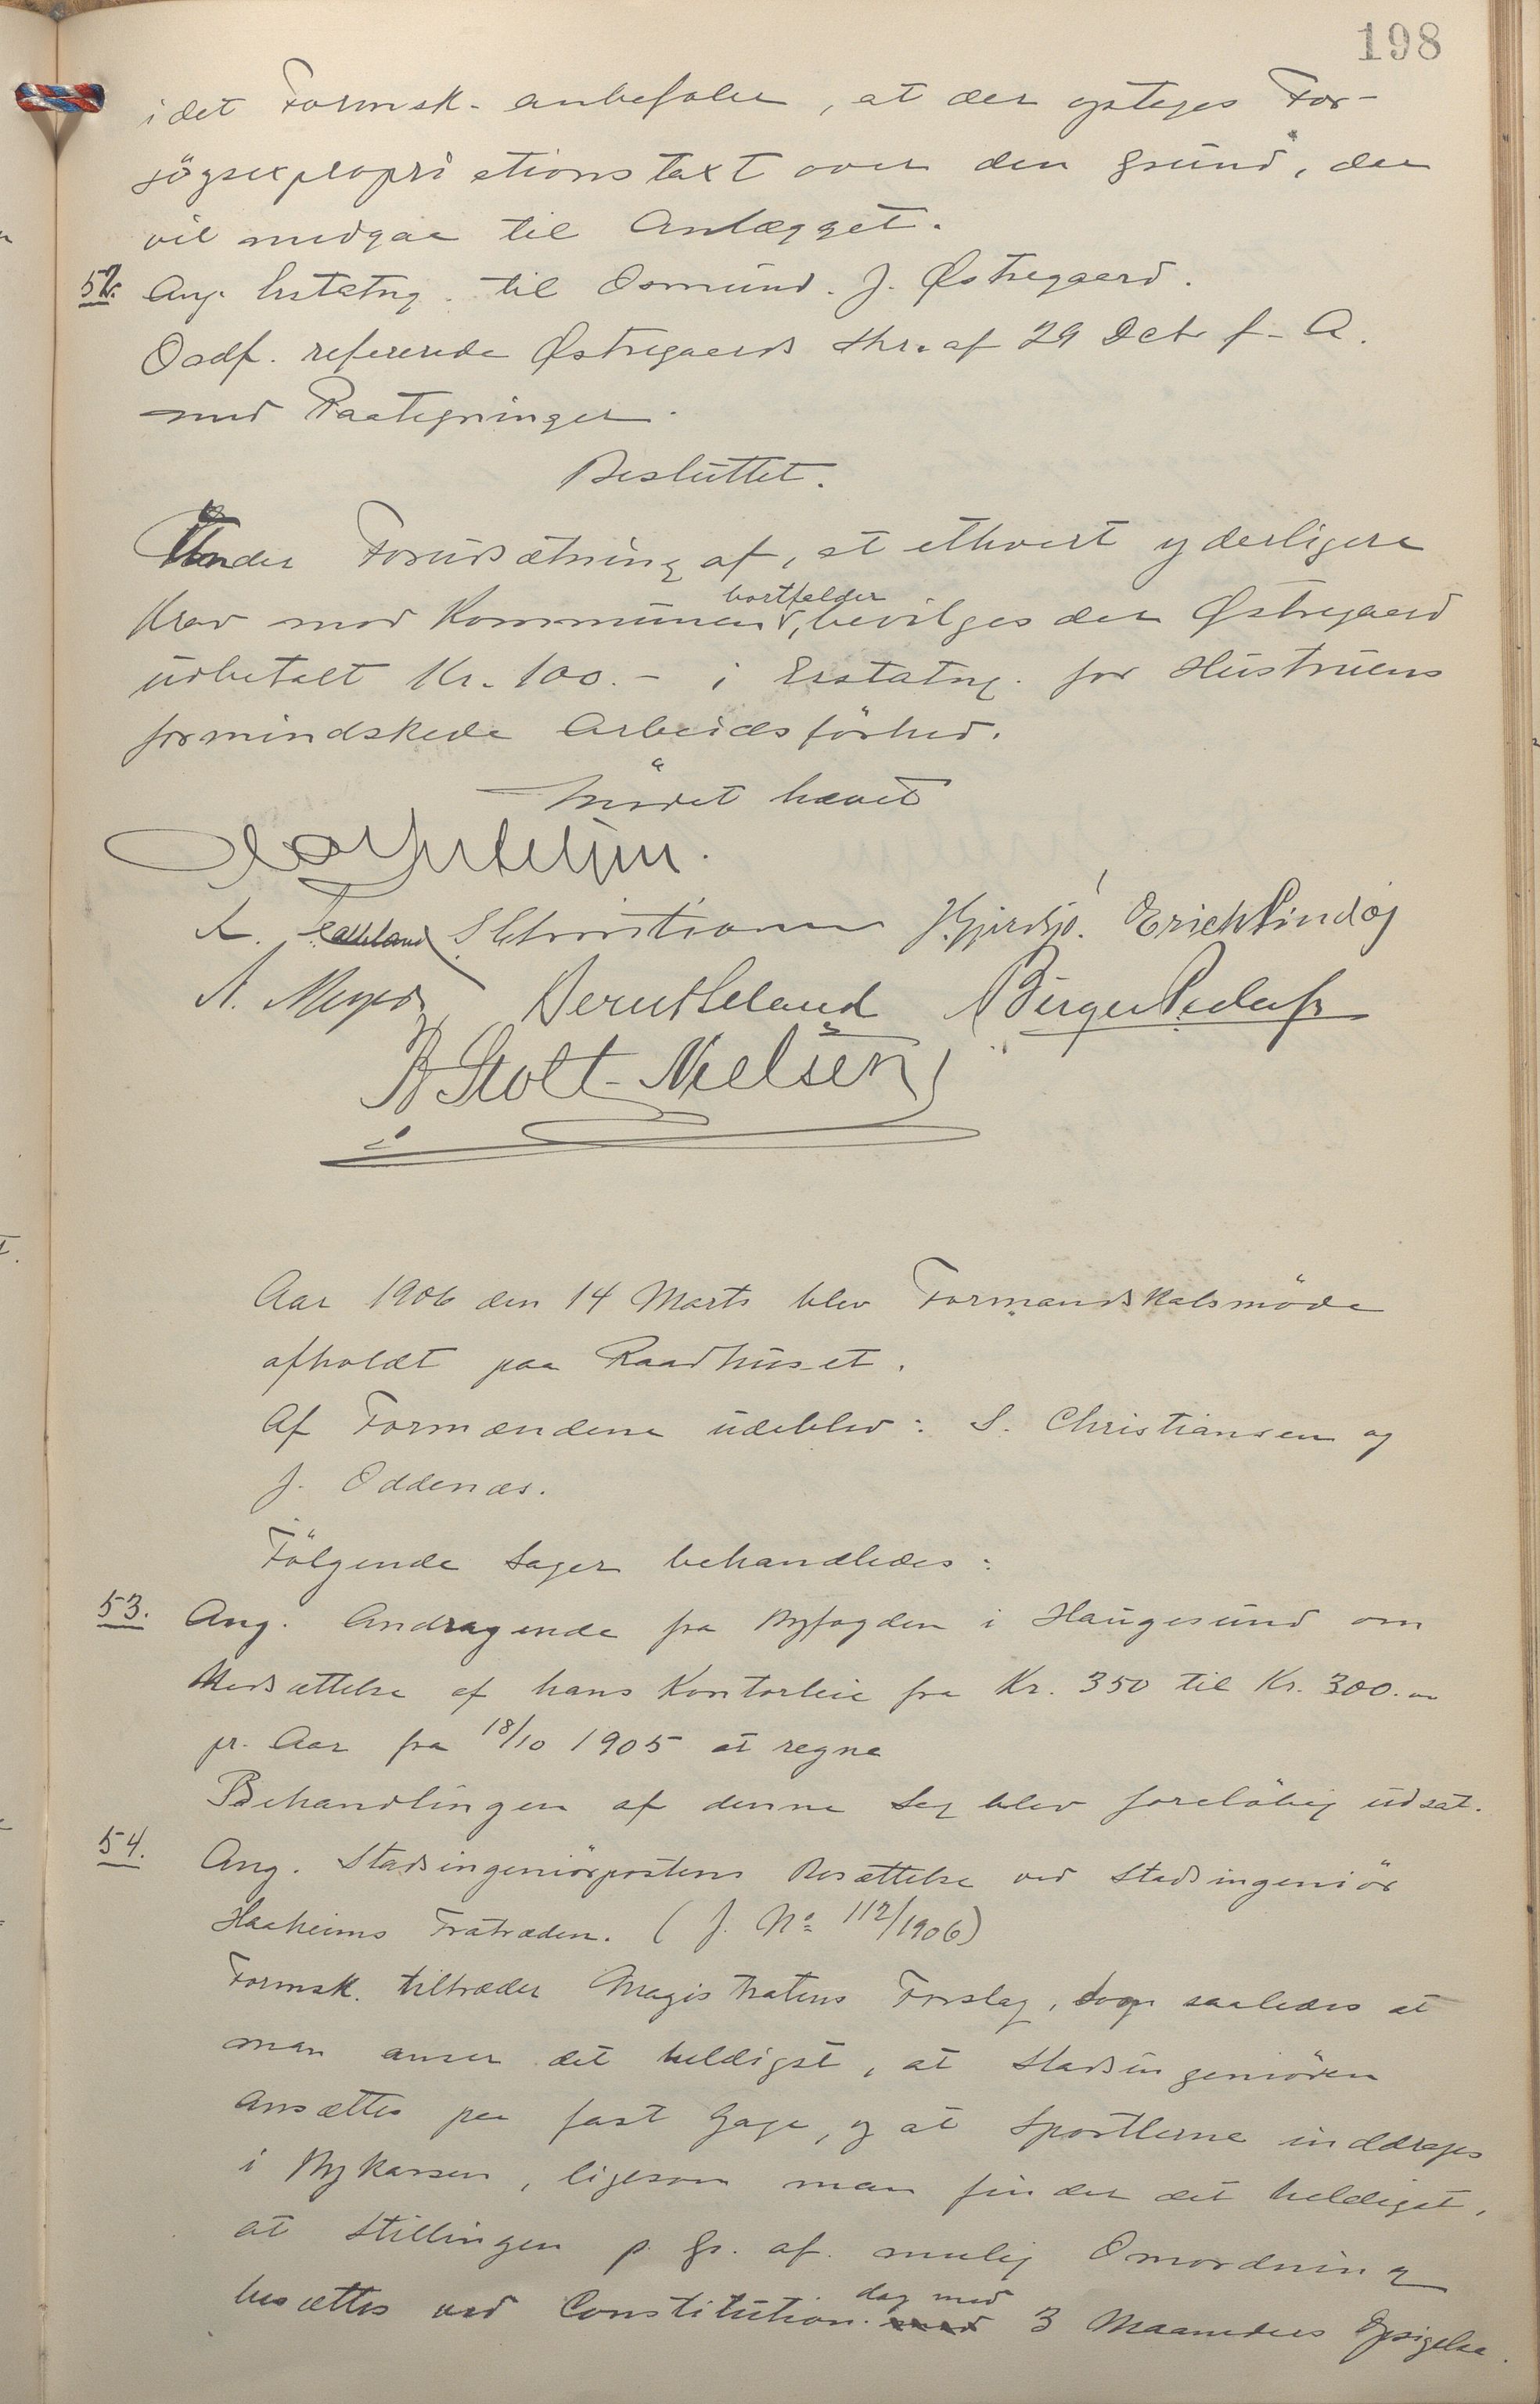 198
idet Formsk. anbefaler, at der optages For-
søgsexpropriationstaxt over den Grund, der
vil medgaa til Anlægget.
52. Ang. Erstatng. til Osmund J. Østregaard.
Ordf. refererede Østregaards Skr. af 29 Dcbr f. A.
med Paategninger.
Besluttet.
Under Forudsætning af, at ethvert yderligere
Krav mod Kommunen bortfalder, bevilges der Østregaard
udbetalt Kr. 100.- i Erstatng. for Hustruens
formindskede Arbeidsførhed.
Mödet hævet
S Christiansen Erich Lindøj
A. Meyer Bernt Leland Birger Pedersen
B Stolt-Nielsen
Aar 1906 den 14 Marts blev Formandskabsmöde
afholdt paa Raadhuset.
Af Formændene udeblev: S. Christiansen og
J. Oddenæs.
Fölgende Sager behandledes:
53. Ang. Andragende fra Byfogden i Haugesund om
Nedsættelse af hans Kontorleie fra Kr. 350 til Kr. 300.-
pr. Aar fra 18/10 1905 at regne
Behandlingen af denne Sag blev foreløbig udsat.
54. Ang. Stadsingeniørpostens Besættelse ved Stadsingeniør
Haaheims Fratræden. (J. No 112/1906)
Formsk. tiltræder Magistratens Forslag, dog saaledes at
man anser det heldigst, at Stadsingeniøren
ansættes paa fast Gage, og at Sportlerne inddrages
i Bykassen, ligesom man finder det heldigst,
at Stillingen p. Gr. af mulig Omordning
besættes ved Constitution dog med 3 Maaneders Opsigelse.